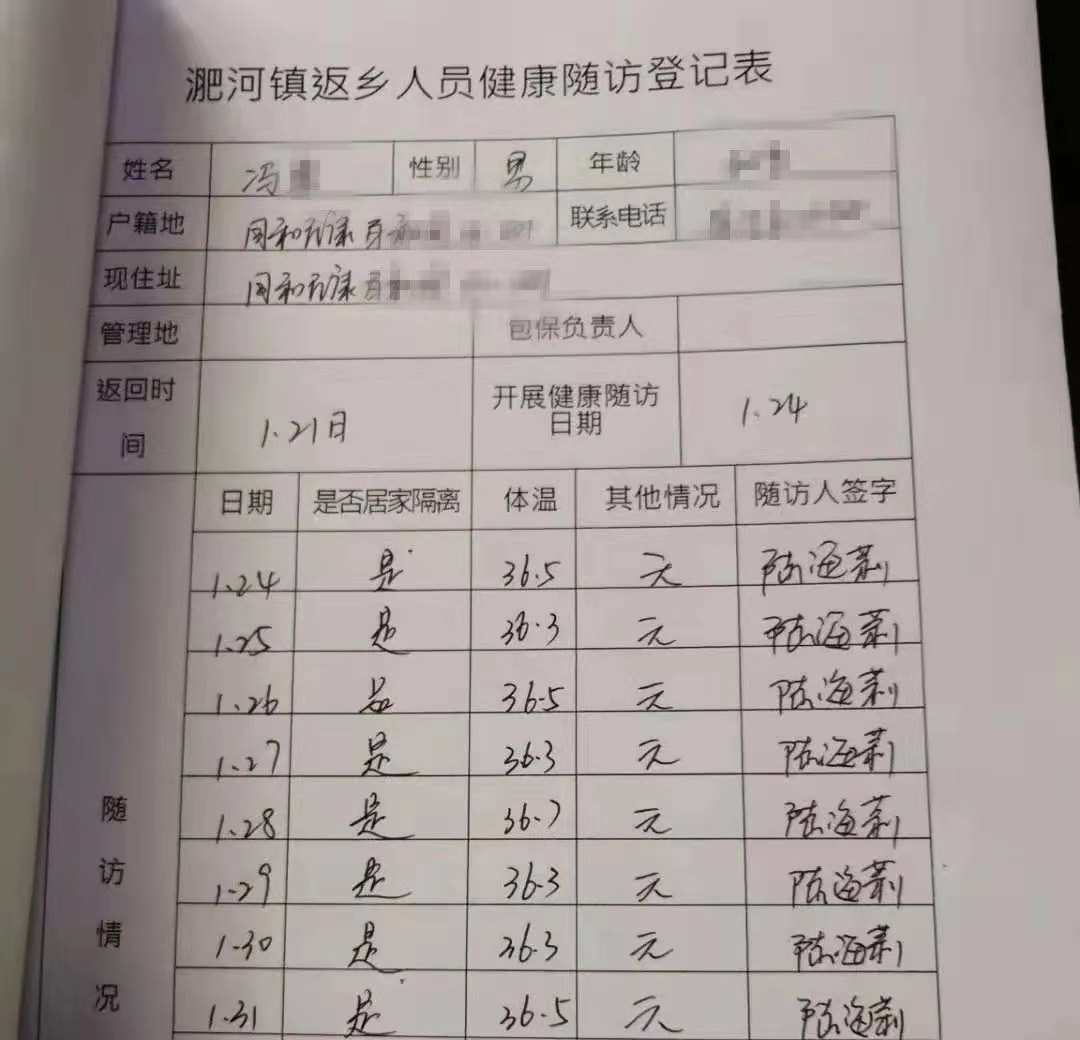 淝河镇返乡人员健康随访登记表
姓名 冯 性别 男 年龄
户籍地 同和 康 联系电话
现住址 同和 康
管理地 包保负责人
返回时间 1.21日 开展健康随访日期 1.24
随访情况
日期 是否居家隔离 体温 其他情况 随访人签字
1.24 是 36.5 无 陆海莉
1.25 是 36.3 无 陆海莉
1.26 是 36.5 无 陆海莉
1.27 是 36.3 无 陆海莉
1.28 是 36.7 无 陆海莉
1.29 是 36.3 无 陆海莉
1.30 是 36.3 无 陆海莉
1.31 是 36.5 无 陆海莉